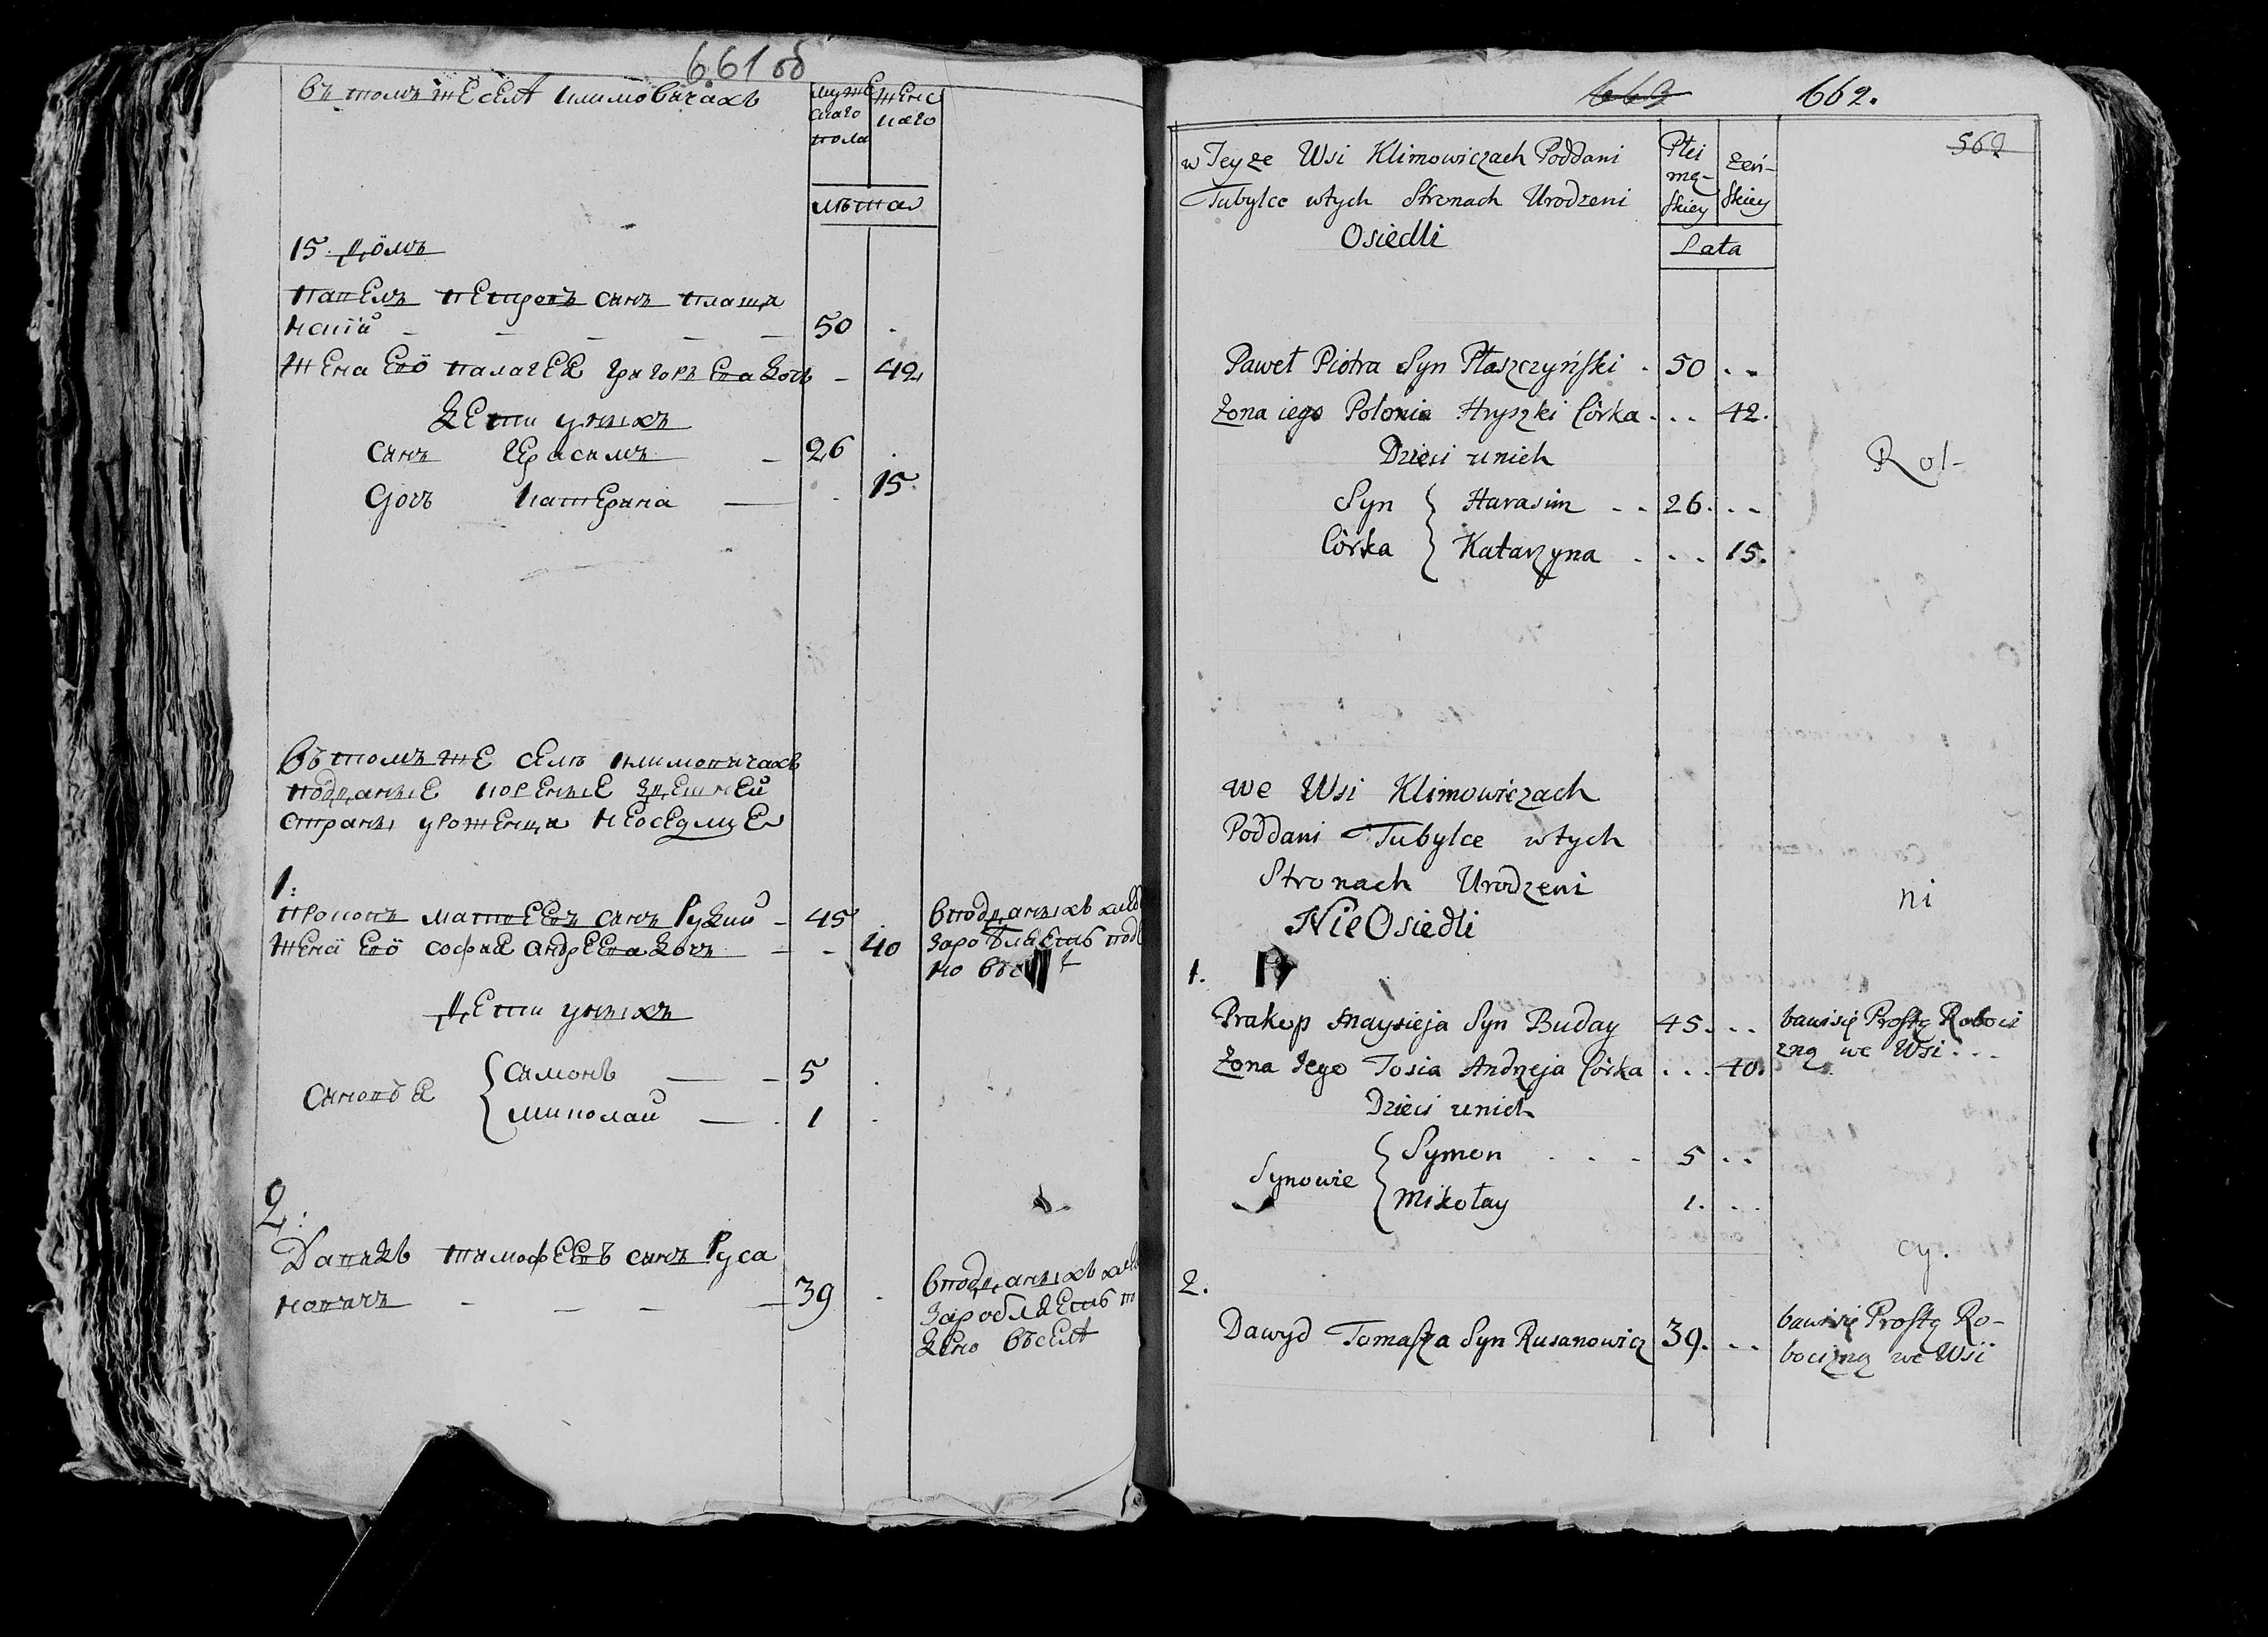 661 об
Въ томъ же селѣ Климовичахъ
мужe
скаго
пола
женс
каго
лѣта
15 Домъ
Павелъ Петровъ синъ Плащи
нскій 50
Жена Ево Палагея Григорьева дочь 42
дети унихъ
синъ Герасимъ 26
дочь Катерина 15
Въ томъ же селѣ Климовичахъ
подданные коренные здешней
страны уроженци неоседлие
1:
Прокопъ Матвеевъ синъ 45
Жена Ево София Андреева дочь 40
Вподданныхъ
Дети унихъ
Синовья { Симонъ 5
Миколай 1
2:
Давидъ Тимофеевъ синъ Руса
новичъ 39
Вподданныхъ
въселѣ
663 662.
562
w Teyze Wsi Klimowiczach Poddani
Tubylce wtych Stronach Urodzeni
Osiedli
Płci
mę-
skiey
żeń-
skiey
Lata
Paweł Piotra Syn Płaszczyński 50
Żona iego Polonia Hryszki Córka 42.
Dzieci unich
Syn } Harasim 26.
Córka } Katarzyna 15.
Rol-
we Wsi Klimowiczach
Poddani Tubylce wtych
Stronach Urodzeni
Nie Osiedli
ni
1.
Prakop Maysieja Syn Buday 45.
Żona Jego Zosia Andrzeja Córka 40.
bawi się Prostą Roboci
zną we Wsi
Dzieci unich
Synowie { Symon 5
Mikołay 1.
cy.
2.
Dawyd Tomasza Syn Rusanowicz 39.
bawi się Prostą Ro-
bocizną we Wsi